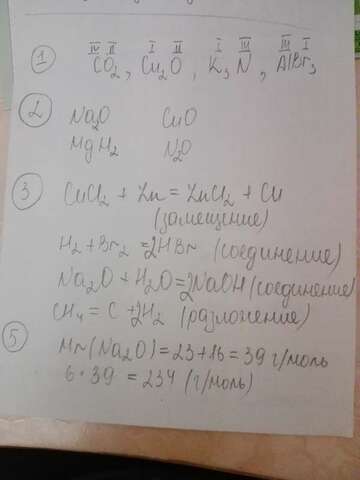 IV II I II I III III I
1 CO₂, Cu₂O, K₃N, AlBr₃
2 Na₂O CuO
MgH₂ N₂O
3 CuCl₂ + Zn = ZnCl₂ + Cu
(замещение)
H₂ + Br₂ = 2HBr (соединение)
Na₂O + H₂O = 2NaOH (соединение)
CH₄ = C + 2H₂ (разложение)
5 Mr(Na₂O) = 23 + 16 = 39 г/моль
6 · 39 = 234 (г/моль)